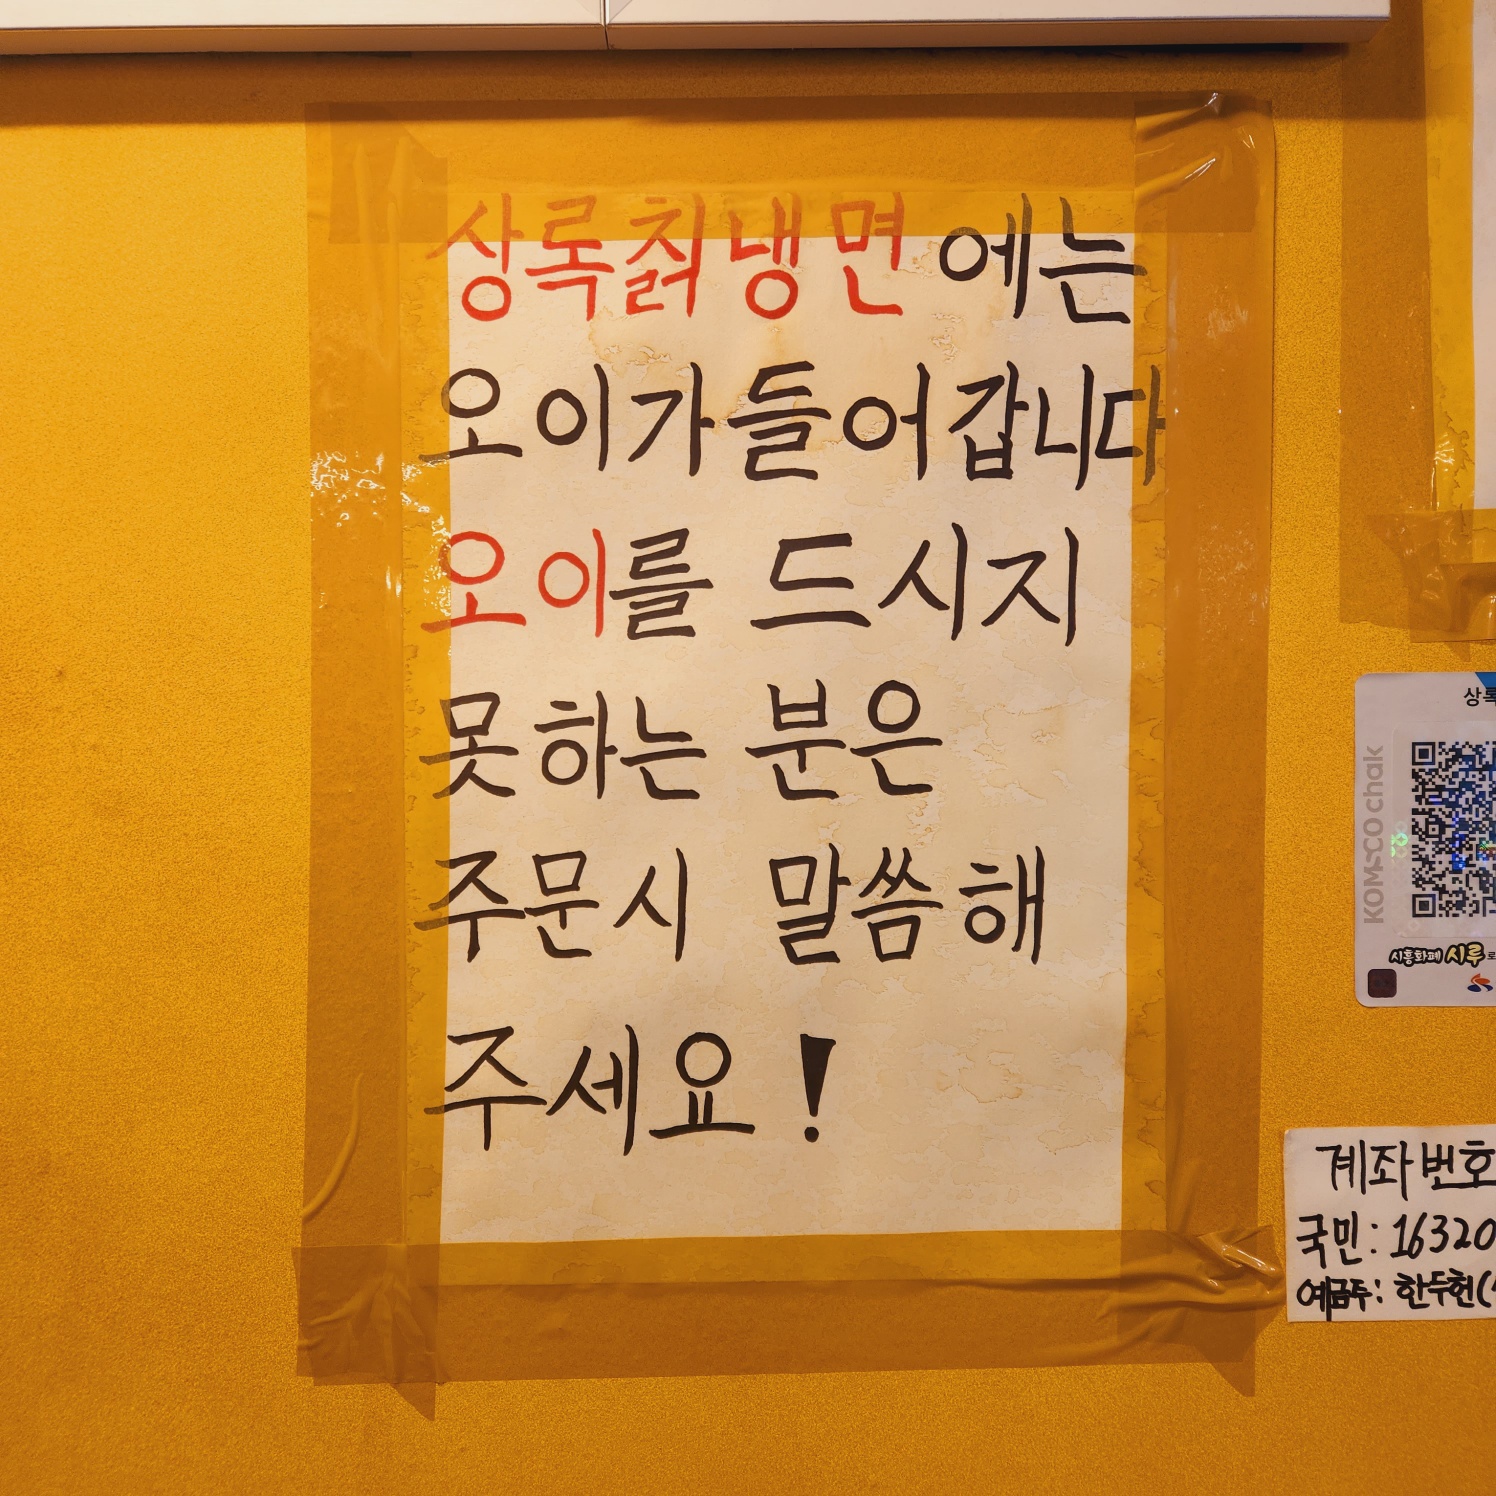 상록칡냉면에는
오이가들어갑니다
오이를 드시지
못하는 분은
주문시 말씀해
주세요!
상록
KOMSCO chak
시흥화폐 시루로
계좌번호
국민: 16320
예금주: 한두헌(